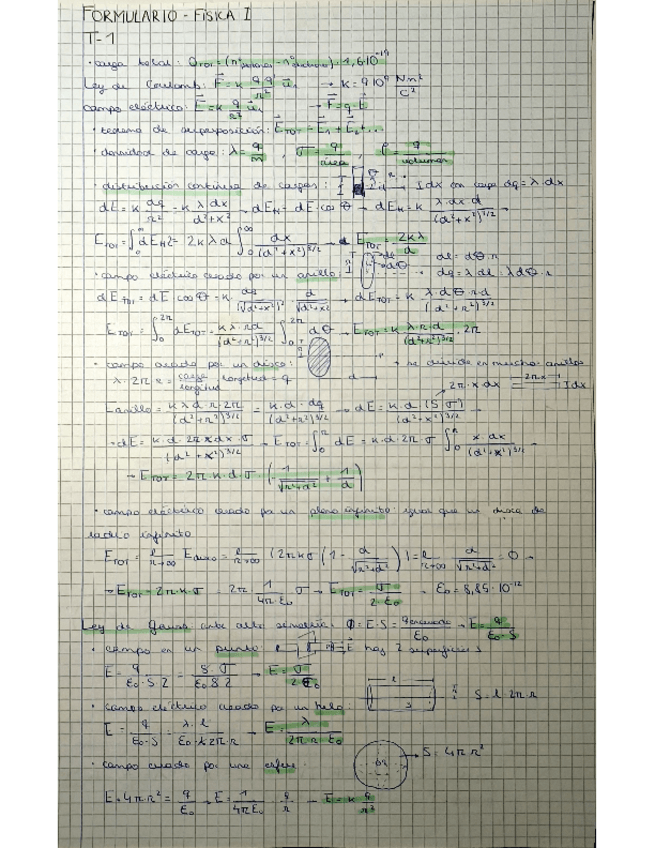 FORMULARIO - FISICA I
T-1
· carga total: Q_TOT = (nº protones - nº electrones) · 1,6·10⁻¹⁹
Ley de Coulomb: F = k q q' / r² u_r → k = 9·10⁹ Nm²/C²
campo eléctrico: E = k q/r² u_r → F = q·E
· teorema de superposición: E_TOT = E₁ + E₂ + ...
· densidad de carga: λ = q/m , σ = q/área , ρ = q/volumen
· distribución continua de cargas: → I dx con carga dq = λ dx
dE = k dq/r² = k λ dx/(d²+x²) → dE_H = dE · cos θ → dE_H = k λ dx d/(d²+x²)^3/2
E_TOT = ∫ dE_H 2 = 2kλd ∫₀^∞ dx/(d²+x²)^3/2 → E_TOT = 2kλ/d
· campo eléctrico creado por un anillo: dl = dθ·r
dq = λ dl = λ dθ·r
dE_TOT = dE cos θ = k · dq/(√(d²+x²))² · d/√(d²+x²) → dE_TOT = k λ·dθ·r·d/(d²+r²)^3/2
E_TOT = ∫₀^2π dE_TOT = kλ·r·d/(d²+r²)^3/2 ∫₀^2π dθ → E_TOT = k λ·r·d/(d²+r²)^3/2 · 2π
· campo creado por un disco: → se divide en muchos anillos
λ·2π x = carga/longitud · longitud = q d → 2π·x dx 2πx I dx
E anillo = kλ d·r·2π/(d²+r²)^3/2 = k·d·dq/(d²+r²)^3/2 → dE = k·d (S·σ)/(d²+x²)^3/2
→ dE = k·d·2πx dx·σ/(d²+x²)^3/2 → E_TOT = ∫₀^r dE = k·d·2π·σ ∫₀^r x·dx/(d²+x²)^3/2
→ E_TOT = 2π·k·d·σ (-1/√(r²+d²) + 1/d)
· campo eléctrico creado por un plano infinito: igual que un disco de
radio infinito
E_TOT = l r→∞ E disco = l r→∞ (2πkσ (1 - d/√(r²+d²))) = l r→∞ d/√(r²+d²) = 0
→ E_TOT = 2π·k·σ = 2π 1/4πε₀ σ → E_TOT = σ/2·ε₀ → ε₀ = 8,85·10⁻¹²
Ley de Gauss ante alta simetría: Φ = E·S = q encerrada/ε₀ → E = q/ε₀·S
· campo en un punto: E hay 2 superficies
E = q/ε₀·S·2 = S·σ/ε₀·S·2 → E = σ/2ε₀
l
· campo eléctrico creado por un hilo: S S = l·2π·r
E = q/ε₀·S = λ·l/ε₀·l·2π·r → E = λ/2π r ε₀
· campo creado por una esfera: S = 4πr²
E·4πr² = q/ε₀ → E = 1/4πε₀ · q/r → E = k q/r²